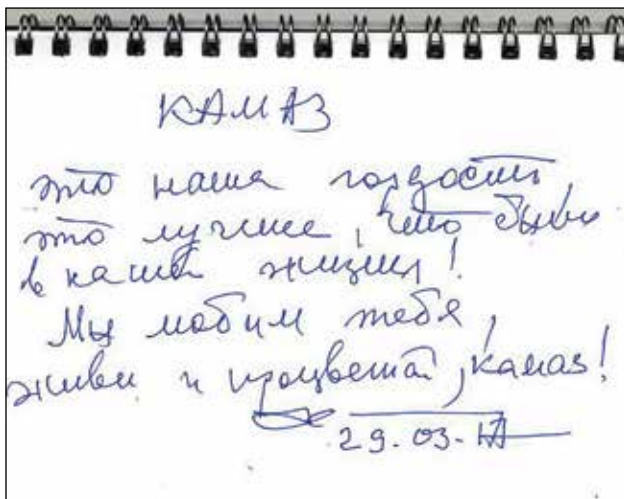 КАМАЗ
это наша гордость,
это лучшее, что было
в нашей жизни!
Мы любим тебя,
живи и процветай, Камаз!
29.03.